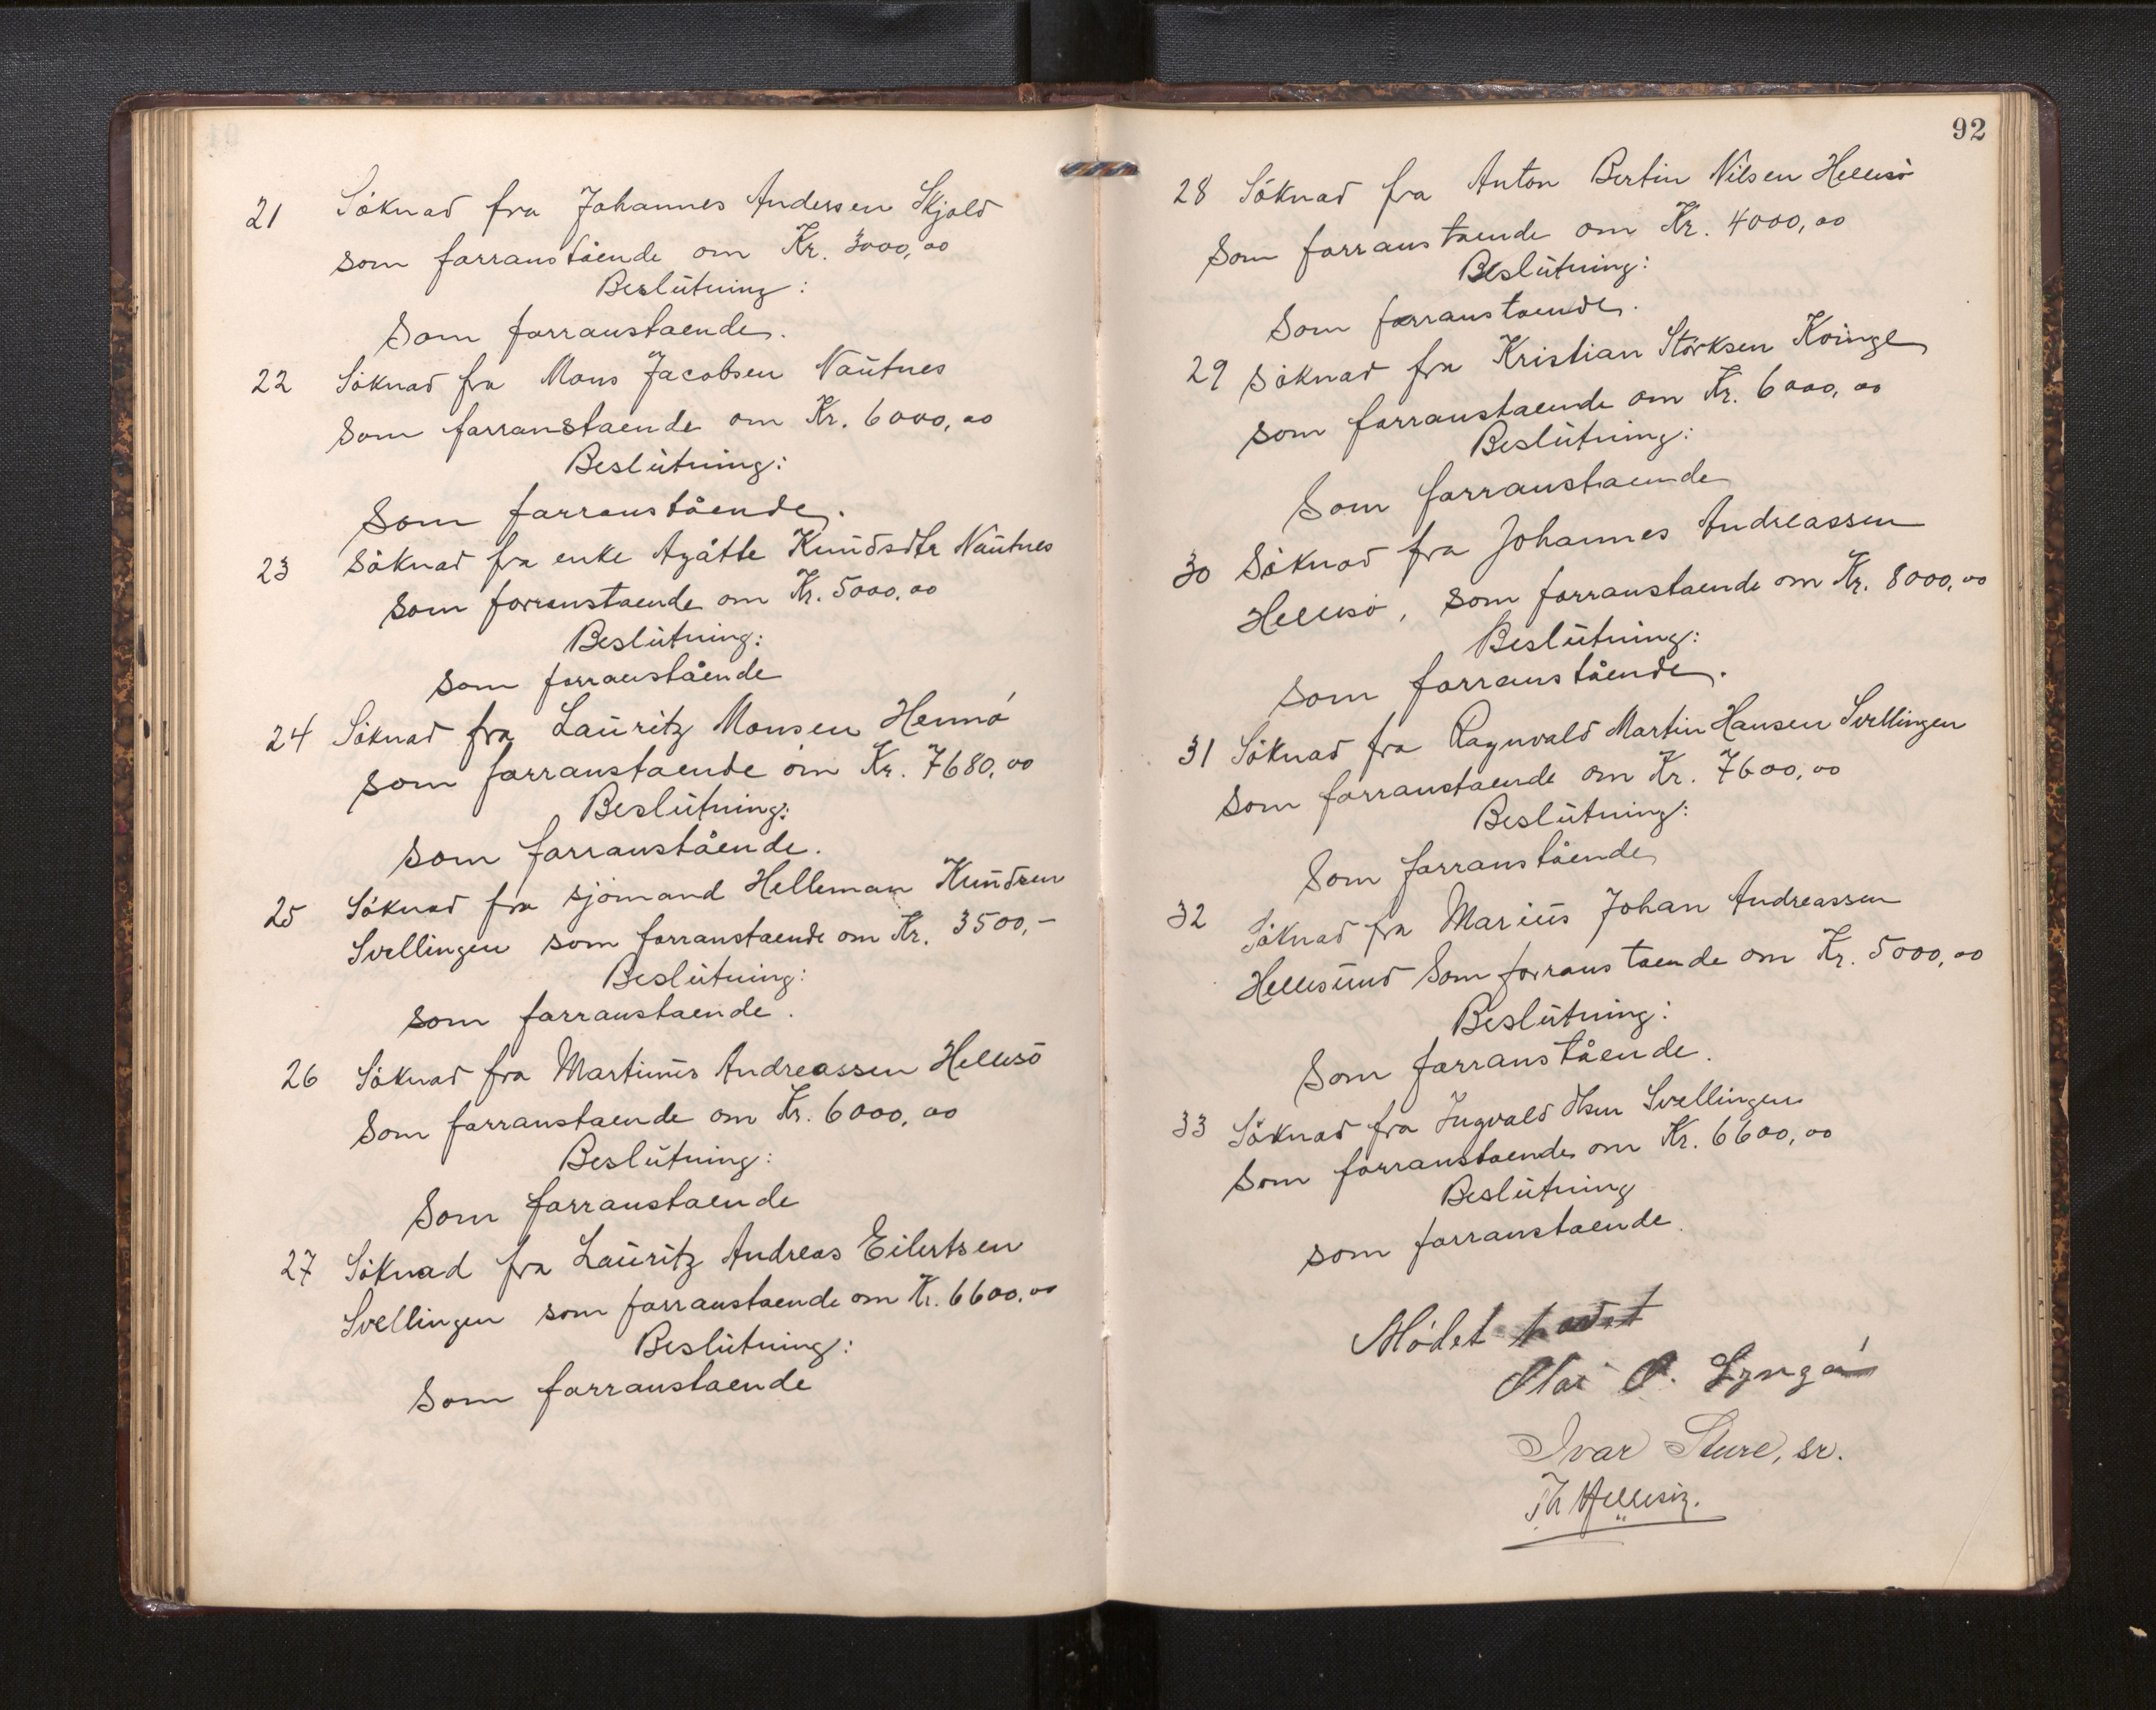 21 Söknad fra Johannes Andersen Skjold
som forranstående om Kr. 3000,00
Beslutning:
Som forranstaende.
22 Söknad fra Mons Jacobsen Nautnes
Som forranstaende om Kr. 6000,00
Beslutning:
Som forranstående.
23 Söknad fra enke Agåtte Knudsdtr Nautnes
som forranstaende om Kr. 5000,00
Beslutning:
som forranstående
24 Söknad fra Lauritz Monsen Hernö
som forranstaende om Kr. 7680,00
Beslutning:
som forranstående.
25 Söknad fra sjömand Helleman Knudsen
Svellingen som forranstaende om Kr. 3500,-
Beslutning:
som forranstaende.
26 Söknad fra Martinus Andreassen Hellesö
Som forranstaende om Kr. 6000,00
Beslutning:
Som forranstaende
27 Söknad fra Lauritz Andreas Eilertsen
Svellingen som forranstaende om Kr. 6600,00
Beslutning:
Som forranstaende
92
28 Söknad fra Anton Bertin Nilsen Hellesö
Som forranstaende om Kr. 4000,00
Beslutning:
Som forranstaende.
29 Söknad fra Kristian Störksen Kvinge
som forranstaende om Kr. 6000,00
Beslutning:
Som forranstaende
30 Söknad fra Johannes Andreassen
Hellesö, som forranstaende om Kr. 8000,00
Beslutning:
som forranstående.
31 Söknad fra Ragnvald Martin Hansen Svellingen
Som forranstaende om Kr. 7600,00
Beslutning:
Som forranstående
32 Söknad fra Marius Johan Andreassen
Hellesund Som forranstaende om Kr. 5000,00
Beslutning:
Som forranstående.
33 Söknad fra Ingvald Olsen Svellingen
Som forranstaende om Kr. 6600,00
Beslutning
som forranstaende.
Mödet hævet
Olai O. Lyngö
Ivar Sture, sr.
Th Hellesöy.